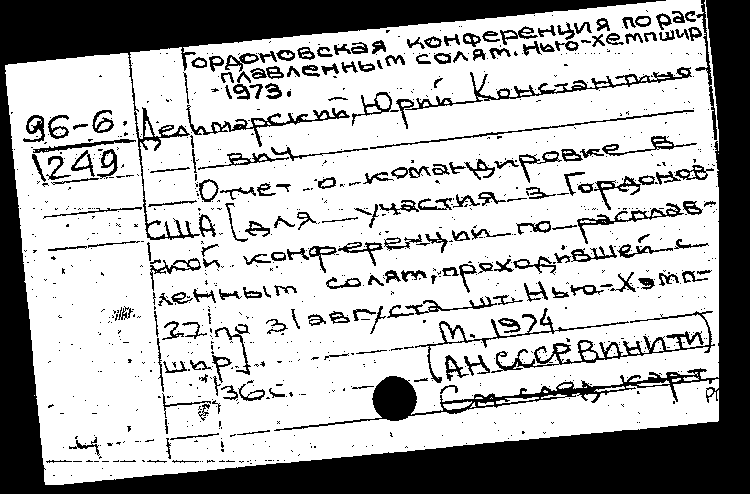 Гордоновская конференция по рас-
плавленным солям. Нью-Хемпшир
1973.
96-6.
1249.
Делимарский, Юрий Константино-
вич
Отчет о командировке в
США [для участия в Гордонов-
ской конференции по расплав-
ленным солям, проходившей с
27 по 31 августа шт. Нью-Хэмп-
шир].
М., 1974.
36 с.
(АН СССР. ВИНИТИ)
См. след. карт.